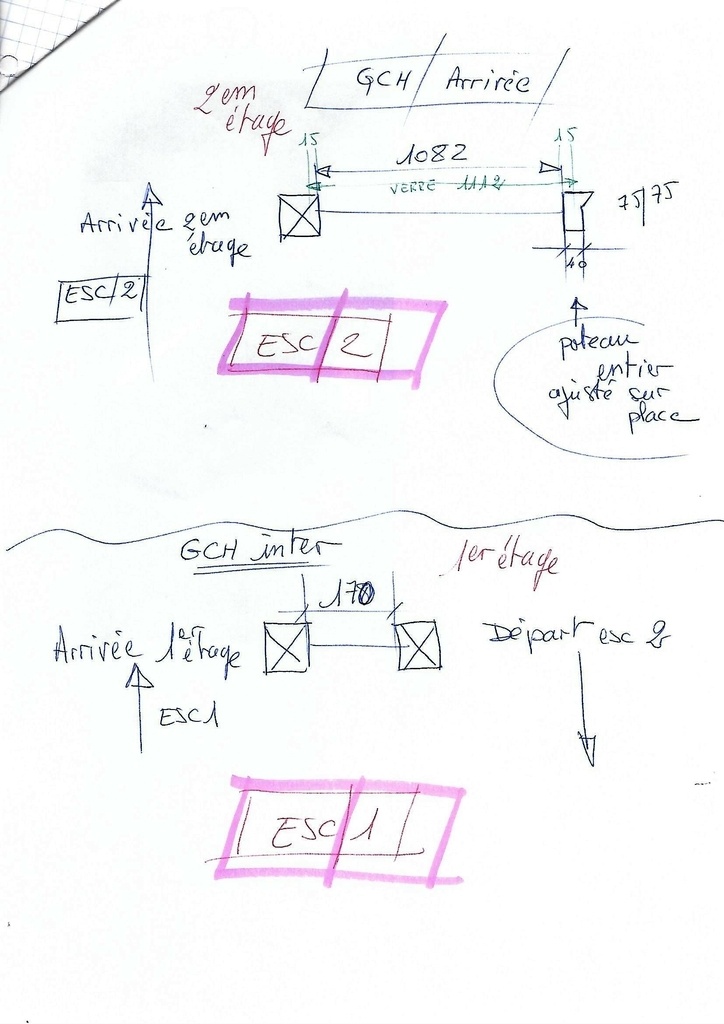 GCH / Arrivée
2em
étage
15
15
1082
VERRE 1112
75/75
Arrivée 2em
étage
40
ESC/2
ESC/2
poteau
entier
ajusté sur
place
GCH inter
1er étage
170
Arrivée 1er étage
Départ esc 2
ESC1
ESC/1